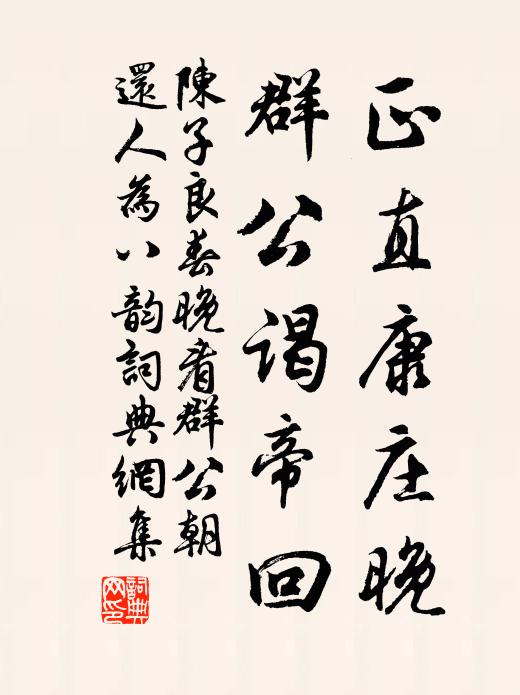 正直康庄晚
群公谒帝回
陳子良春晚看群公朝
還人為八韵詞典網集
詞典網印